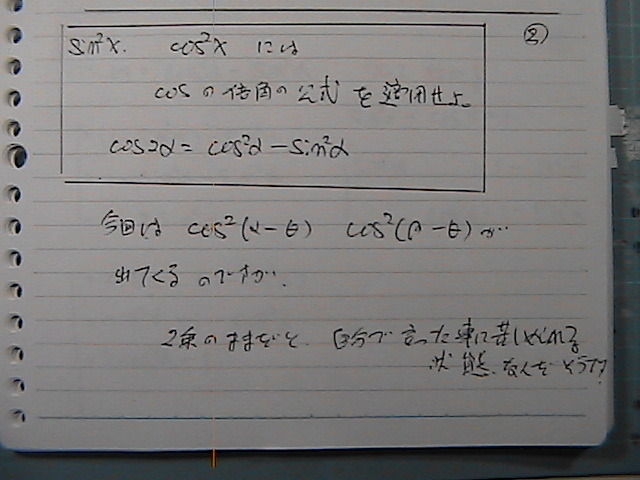 ②
sin²x. cos²x には
cosの倍角の公式を適用せよ
cos2α = cos²α − sin²α
今回は cos²(α−θ) cos²(β−θ) が
出てくるのですが.
2乗のままだと、自分で言った事に苦しめられる
状態.なんで